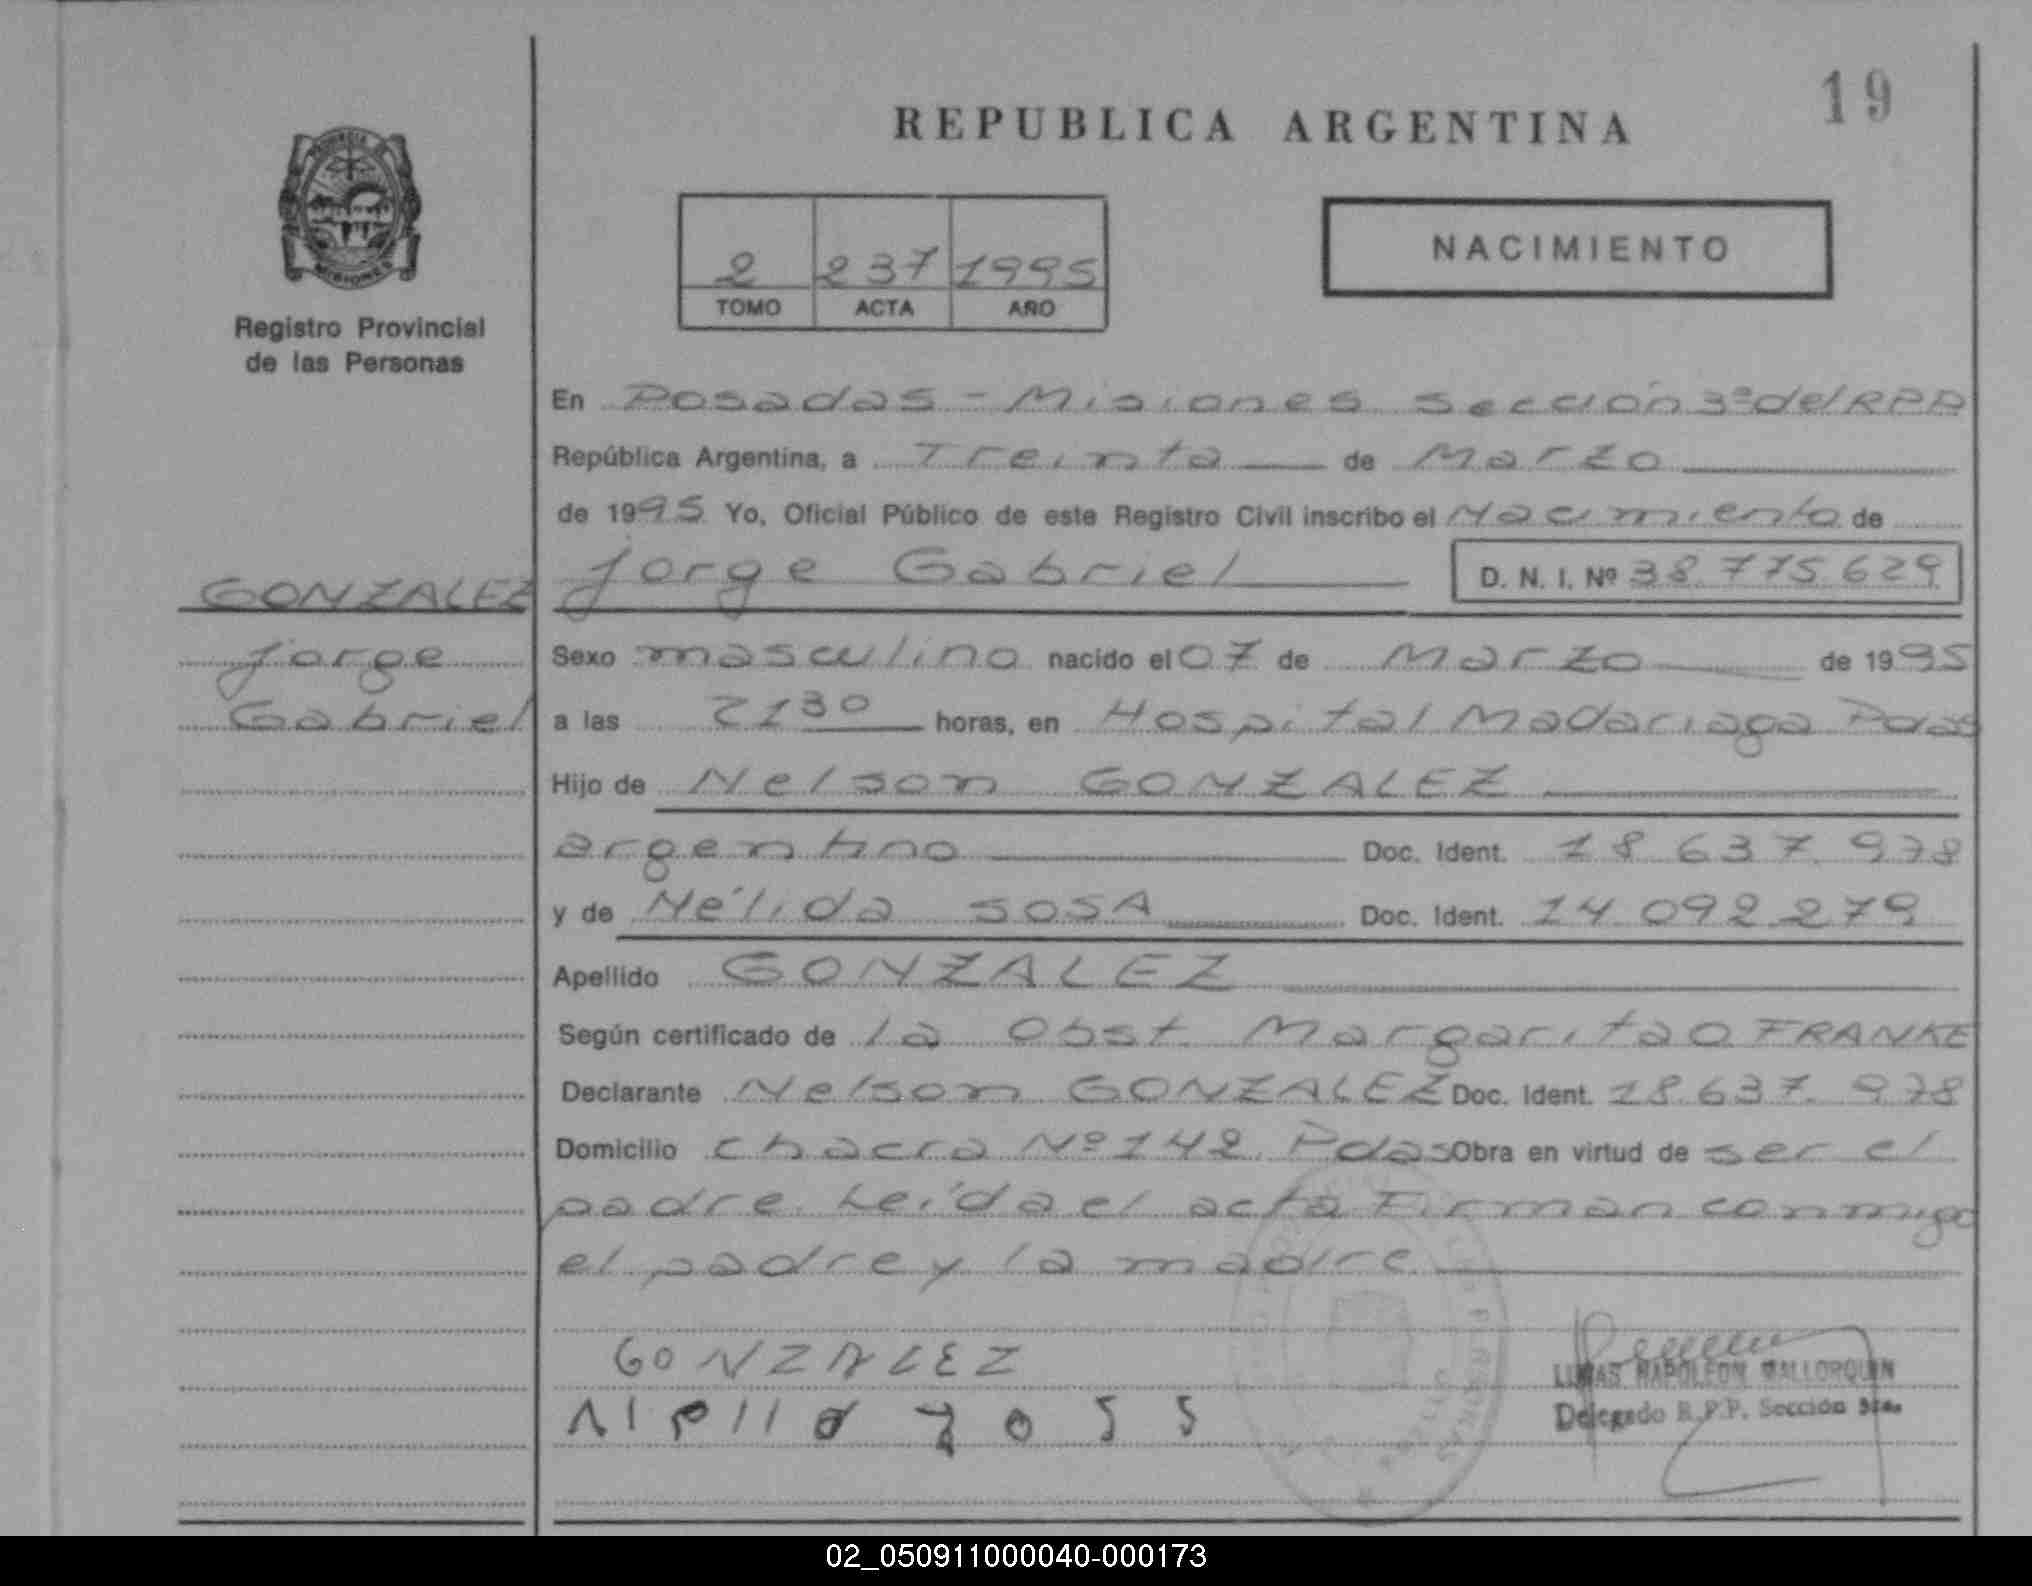 19
REPUBLICA ARGENTINA
PROVINCIA DE
MISIONES
Registro Provincial
de las Personas
2 237 1995
TOMO ACTA AÑO
NACIMIENTO
En Posadas - Misiones Sección 3ª del RPP
República Argentina, a Treinta de Marzo
de 1995 Yo, Oficial Público de este Registro Civil inscribo el Nacimiento de
GONZALEZ
Jorge
Gabriel
Jorge Gabriel D. N. I. Nº 38.775.629
Sexo masculino nacido el 07 de Marzo de 1995
a las 21 30 horas, en Hospital Madariaga Pdas
Hijo de Nelson GONZALEZ
argentino Doc. Ident. 18.637.978
y de Nélida SOSA Doc. Ident. 14.092.279
Apellido GONZALEZ
Según certificado de la Obst. Margarita O. FRANKE
Declarante Nelson GONZALEZ Doc. Ident. 18.637.978
Domicilio Chacra Nº 142. Pdas Obra en virtud de ser el
padre. Leída el acta Firman conmigo
el padre y la madre.
GONZALEZ
LUCAS NAPOLEON MALLORQUIN
Delegado R.P.P. Sección 3ra.
02_050911000040-000173